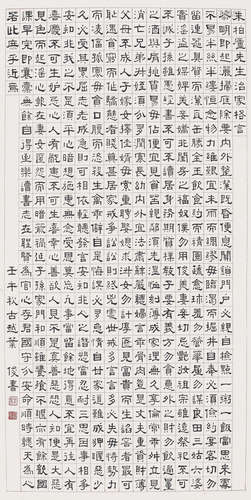 朱柏廬先生治家格言
黎明即起灑掃庭除要內外整潔既昏便息關鎖門戶必親自檢點一粥一飯當思來處
不易半絲半縷恆念物力維艱宜未雨而綢繆毋臨渴而掘井自奉必須儉約宴客切勿
留連器具質而潔瓦缶勝金玉飲食約而精園蔬愈珍饈勿營華屋勿謀良田三姑六婆
實淫盜之媒婢美妾嬌非閨房之福童僕勿用俊美妻妾切忌艷妝祖宗雖遠祭祀不可
不誠子孫雖愚經書不可不讀居身務期質樸教子要有義方勿貪意外之財勿飲過量
之酒與肩挑貿易毋佔便宜見貧苦親鄰須加溫恤刻薄成家理無久享倫常乖舛立見消
亡兄弟叔侄須分多潤寡長幼內外宜法肅辭嚴聽婦言乖骨肉豈是丈夫重資財薄
父母不成人子嫁女擇佳婿毋索重聘娶媳求淑女勿計厚奩見富貴而生諂容者最可
恥遇貧窮而作驕態者賤莫甚居家戒爭訟訟則終凶處世戒多言言多必失毋恃勢力
而凌逼孤寡毋貪口腹而恣殺牲禽乖僻自是悔誤必多頹惰自甘家道難成狎暱惡少
久必受其累屈志老成急則可相依輕聽發言安知非人之譖愬當忍耐三思因事相爭
安知非我之不是須平心暗想施惠無念受恩莫忘凡事當留餘地得意不宜再往人有
喜慶不可生妒忌心人有禍患不可生喜幸心善欲人見不是真善惡恐人知便是大惡
見色而起淫心報在妻女匿怨而用暗箭禍延子孫家門和順雖饔飧不繼亦有餘歡國
課早完即囊橐無餘自得至樂讀書志在聖賢為官心存君國守分安命順時聽天為人
若此庶乎近焉
壬午秋古越葉俊書